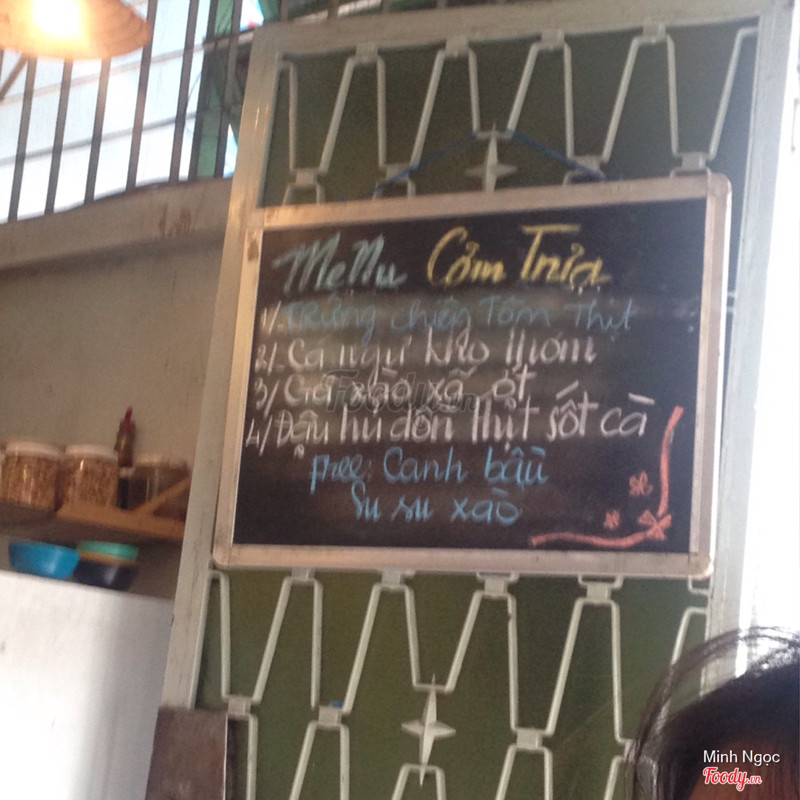 MeNu Cơm Trưa
1/. Trứng chiên Tôm Thịt
2/. Cá ngừ kho thơm
3/ Gà xào xã ớt
4/ Đậu hủ dồn thịt sốt cà
free: Canh bầu
Su su xào
Foody.vn
Minh Ngọc
Foody.vn